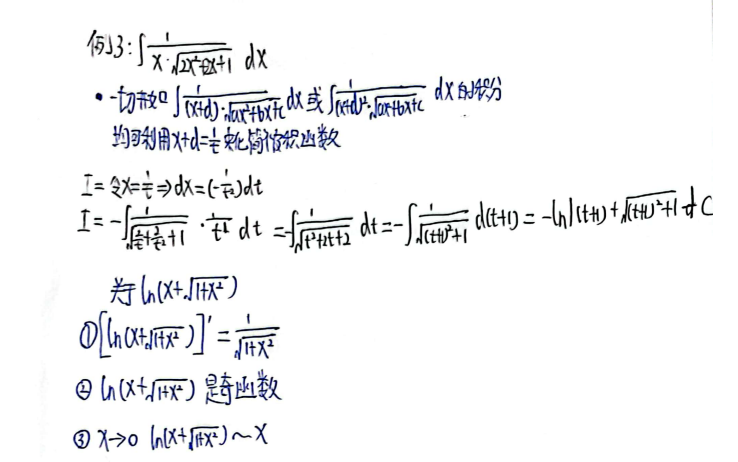 例3: ∫ 1/(x·√(2x²+2x+1)) dx
• 一切形如 ∫ 1/((x+d)·√(ax²+bx+c)) dx 或 ∫ 1/((x+d)²·√(ax²+bx+c)) dx 的积分
均可利用 x+d=1/t 来化简被积函数
I= 令x=1/t ⇒ dx=(-1/t²)dt
I= -∫ 1/√(2/t²+2/t+1) · 1/t dt = -∫ 1/√(t²+2t+2) dt = -∫ 1/√((t+1)²+1) d(t+1) = -ln|(t+1)+√((t+1)²+1)|+C
关于 ln(x+√(1+x²))
① [ln(x+√(1+x²))]' = 1/√(1+x²)
② ln(x+√(1+x²)) 是奇函数
③ x→0 ln(x+√(1+x²)) ~ x